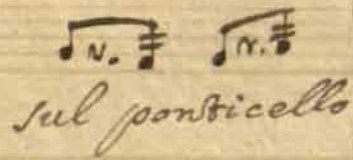 sul ponticello